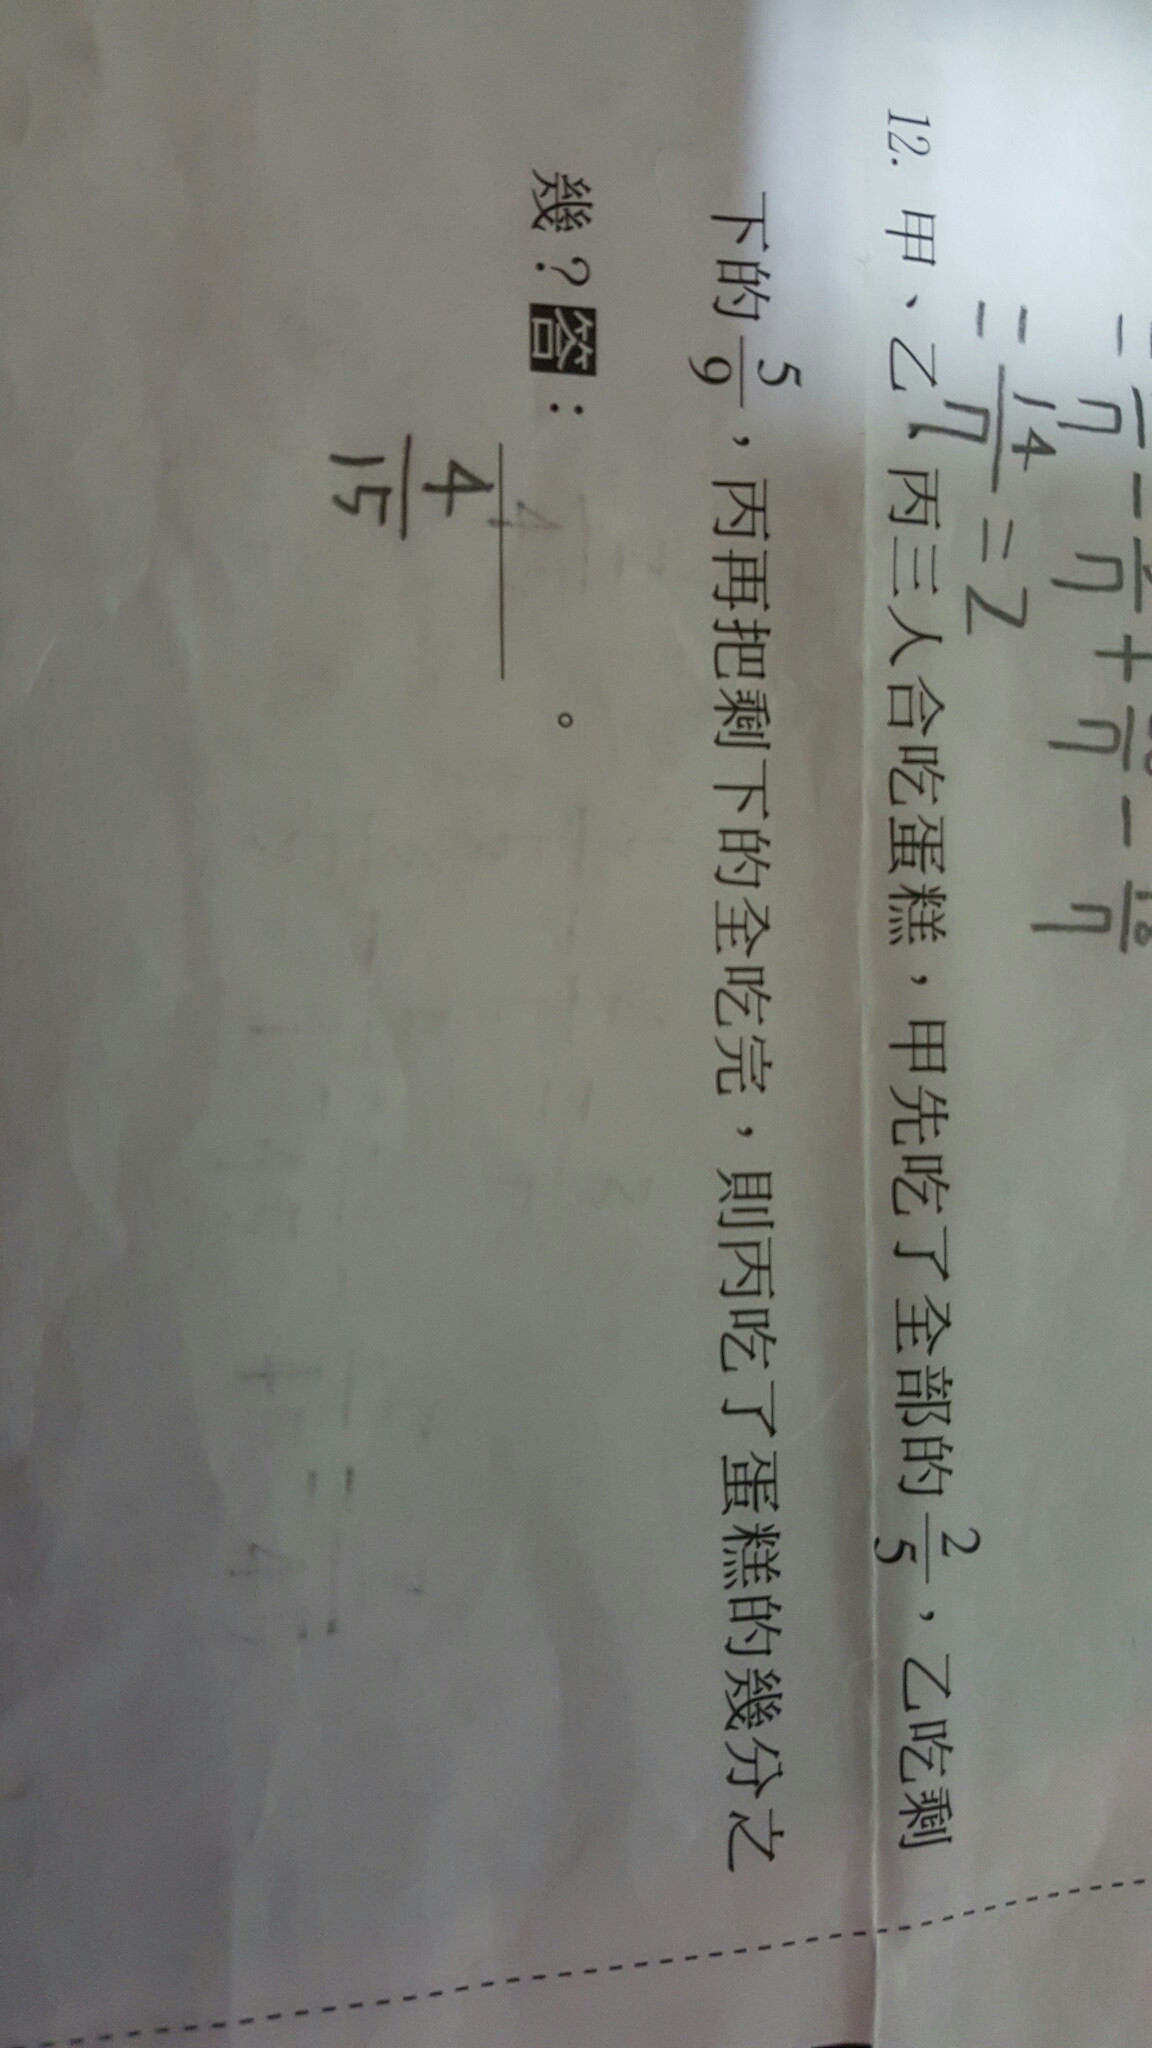 = 14/7 = 2
12. 甲、乙、丙三人合吃蛋糕，甲先吃了全部的 2/5，乙吃剩
下的 5/9，丙再把剩下的全吃完，則丙吃了蛋糕的幾分之
幾？答：
4/15
。